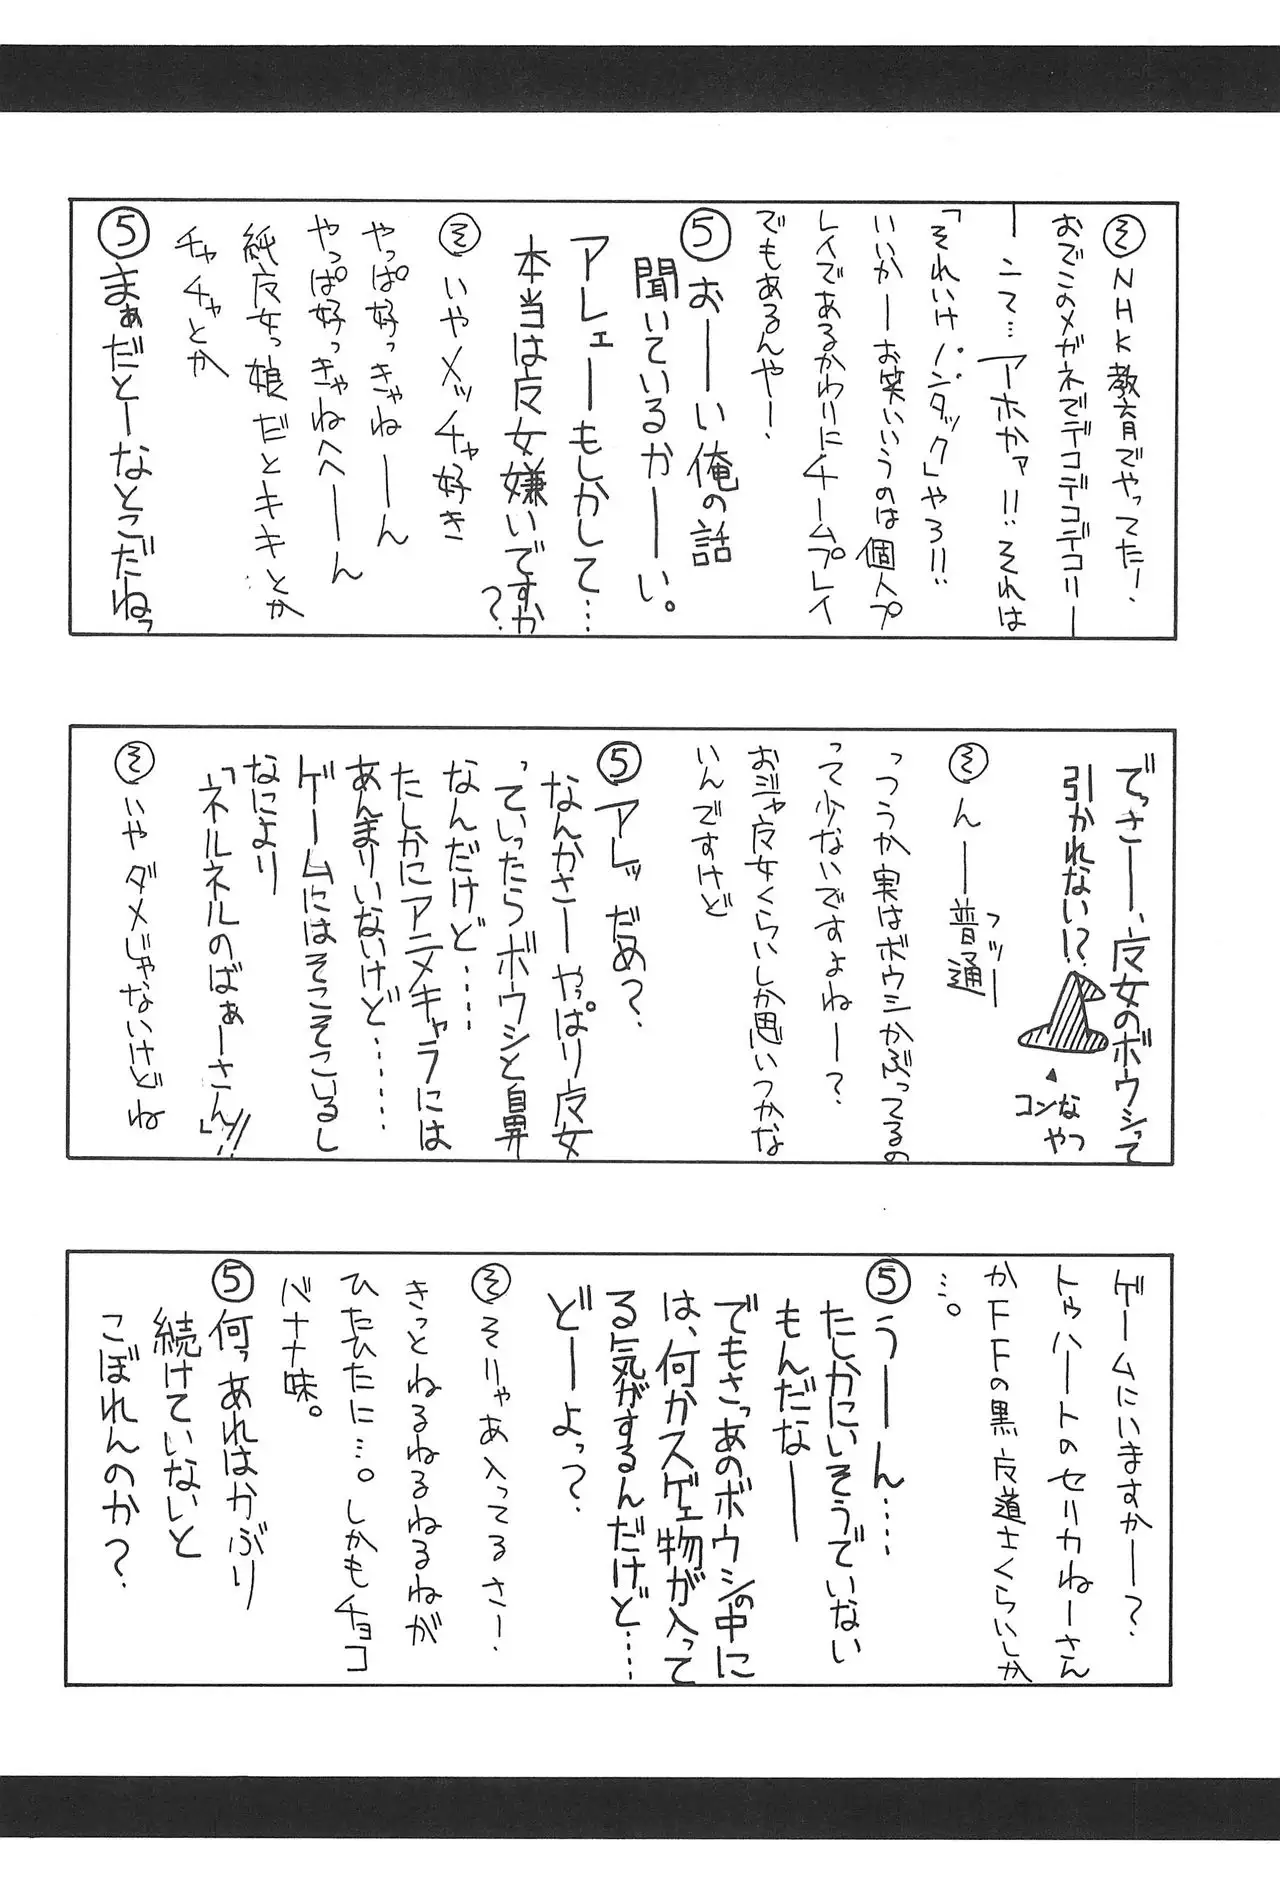 ㋞NHK教育でやってた！
おでこのメガネでデコデコデコリー
ーンて…アホかァ!!それは
「それいけノンタック」やろ!!
いいかーお笑いいうのは個人プ
レイであるかわりにチームプレイ
でもあるんやー！
⑤おーい俺の話
聞いているかーい。
アレェーもしかして…
本当は魔女嫌いですか
？
㋞いやメッチャ好き
やっぱ好っきゃねーん
やっぱ好っきゃねへーん
純魔女っ娘だとキキとか
チャチャとか
⑤まぁだとーなとこだねっ
でっさー、魔女のボウシって
引かれない!?
コンな
やつ
㋞んー普通
フツー
っつうか実はボウシかぶってるの
って少ないですよねー？
おジャ魔女くらいしか思いつかな
いんですけど
⑤アレッだめ？
なんかさーやっぱり魔女
っていったらボウシと自昇
なんだけど……
たしかにアニメキャラには
あんまりいないけど………
ゲームにはそこそこいるし
なにより
「ネルネルのばぁーさん」!!
㋞いやダメじゃないけどね
ゲームにいますかー？
トゥハートのセリカねーさん
かFFの黒魔道士くらいしか
…。
⑤うーん……
たしかにいそうでいない
もんだなー
でもさっあのボウシの中に
は、何かスゲェ物が入って
る気がするんだけど……
どーよっ？
㋞そりゃあ入ってるさー！
きっとねるねるねるねが
ひたひたに…。しかもチョコ
バナナ味。
⑤何っあれはかぶり
続けていないと
こぼれんのか？